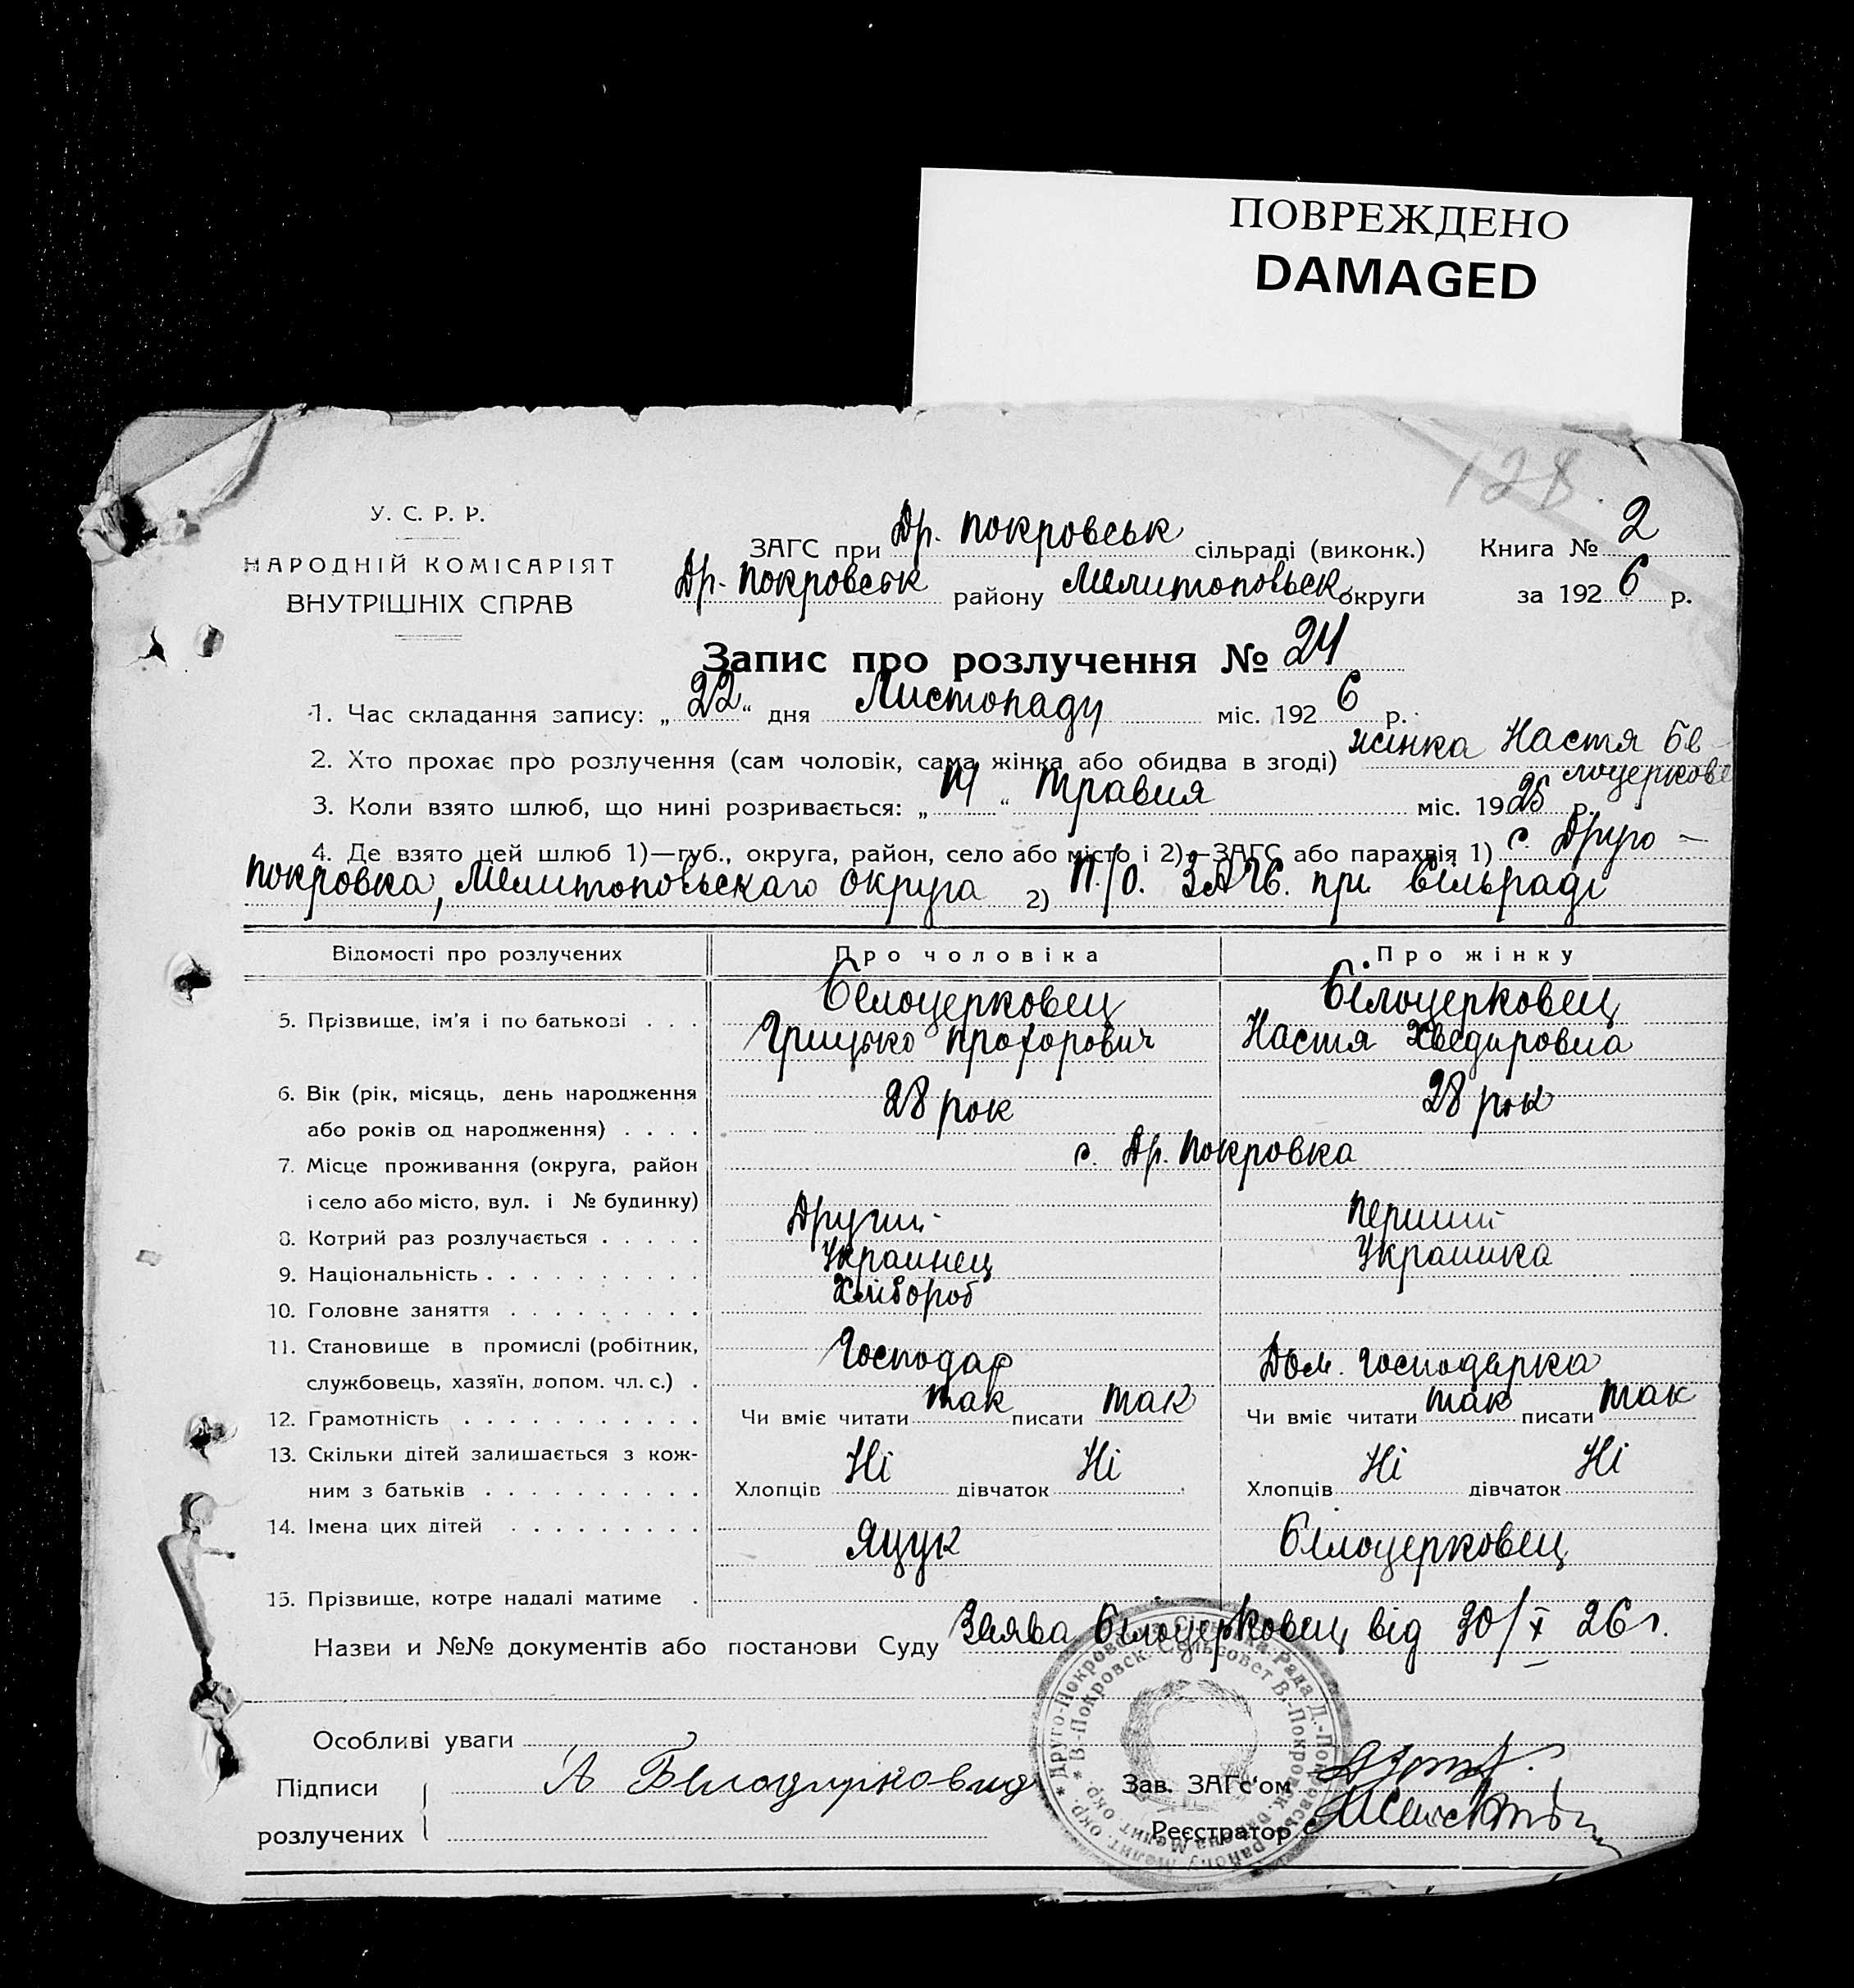 ПОВРЕЖДЕНО
DAMAGED
128
У. С. Р. Р.
НАРОДНІЙ КОМІСАРІЯТ
ВНУТРІШНІХ СПРАВ
ЗАГС при Др. Покровськ сільраді (виконк.) Книга № 2
Др. Покровськ району Мелитопольск округи за 1926 р.
Запис про розлучення № 24
1. Час складання запису: „22“ дня Листопаду міс. 1926 р.
2. Хто прохає про розлучення (сам чоловік, сама жінка або обидва в згоді) жінка Настя Бе-
лоцерковец
3. Коли взято шлюб, що нині розривається: „14“ травня міс. 1925 р.
4. Де взято цей шлюб 1)—губ., округа, район, село або місто і 2)—ЗАГС або парахвія 1) с. Друго-
покровка, Мелитопольскаго округа 2) П/О. ЗАГС. при сільраді
Відомості про розлучених Про чоловіка Про жінку
5. Прізвище, ім'я і по батькові . . . Белоцерковец Білоцерковец
Грицько Прохорович Настя Хведировна
6. Вік (рік, місяць, день народження 28 рок 28 рок
або років од народження) . . . .
7. Місце проживання (округа, район с. Др. Покровка
і село або місто, вул. і № будинку)
8. Котрий раз розлучається . . . . . Другий Перший
9. Національність . . . . . . . . . . Украинец Украинка
10. Головне заняття . . . . . . . . . Хлібороб
11. Становище в промислі (робітник, Господар Дом. господарка
службовець, хазяїн, допом. чл. с.) .
12. Грамотність . . . . . . . . . . . Чи вміє читати так писати так Чи вміє читати так писати так
13. Скільки дітей залишається з кож-
ним з батьків . . . . . . . . . . Хлопців Ні дівчаток Ні Хлопців Ні дівчаток Ні
14. Імена цих дітей . . . . . . . . .
Яцук Білоцерковец
15. Прізвище, котре надалі матиме .
Назви и №№ документів або постанови Суду Заява Білоцерковец від 30/X 26 г.
Особливі уваги
Підписи
розлучених
Зав. ЗАГс'ом
Реєстратор